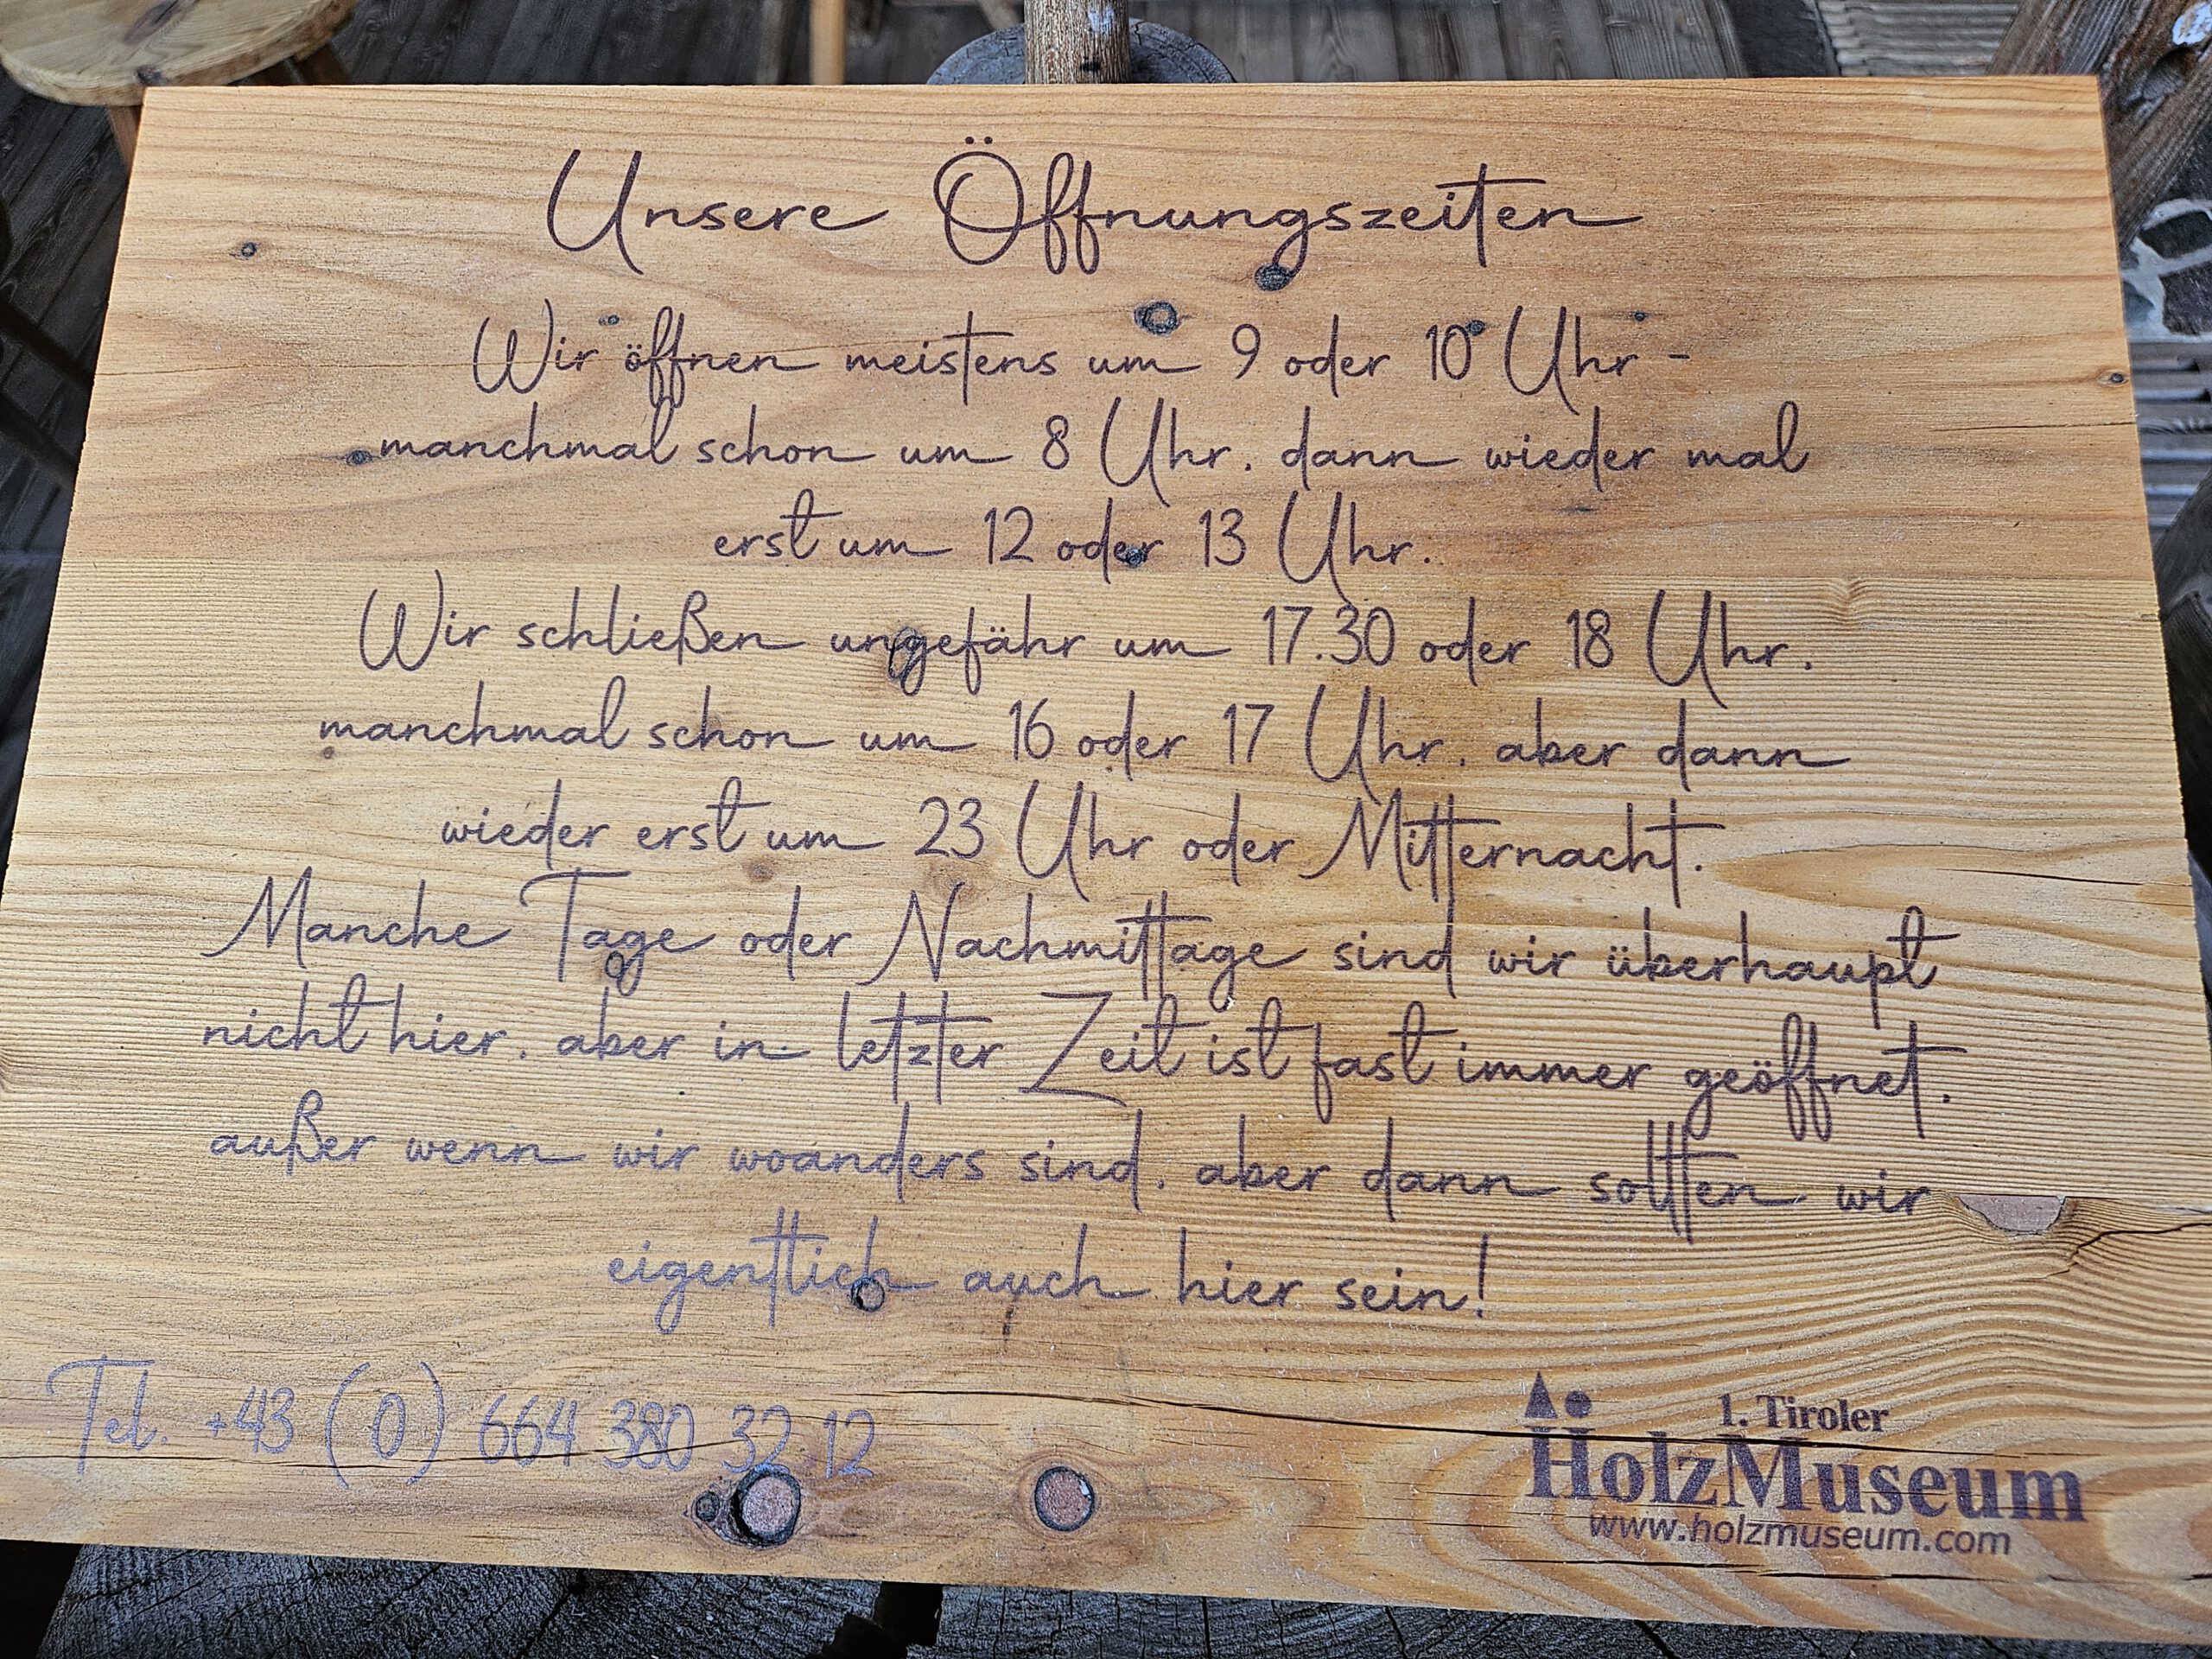 Unsere Öffnungszeiten
Wir öffnen meistens um 9 oder 10 Uhr -
manchmal schon um 8 Uhr, dann wieder mal
erst um 12 oder 13 Uhr.
Wir schließen ungefähr um 17.30 oder 18 Uhr,
manchmal schon um 16 oder 17 Uhr, aber dann
wieder erst um 23 Uhr oder Mitternacht.
Manche Tage oder Nachmittage sind wir überhaupt
nicht hier, aber in letzter Zeit ist fast immer geöffnet,
außer wenn wir woanders sind, aber dann sollten wir
eigentlich auch hier sein!
Tel. +43 (0) 664 380 32 12
1. Tiroler
HolzMuseum
www.holzmuseum.com